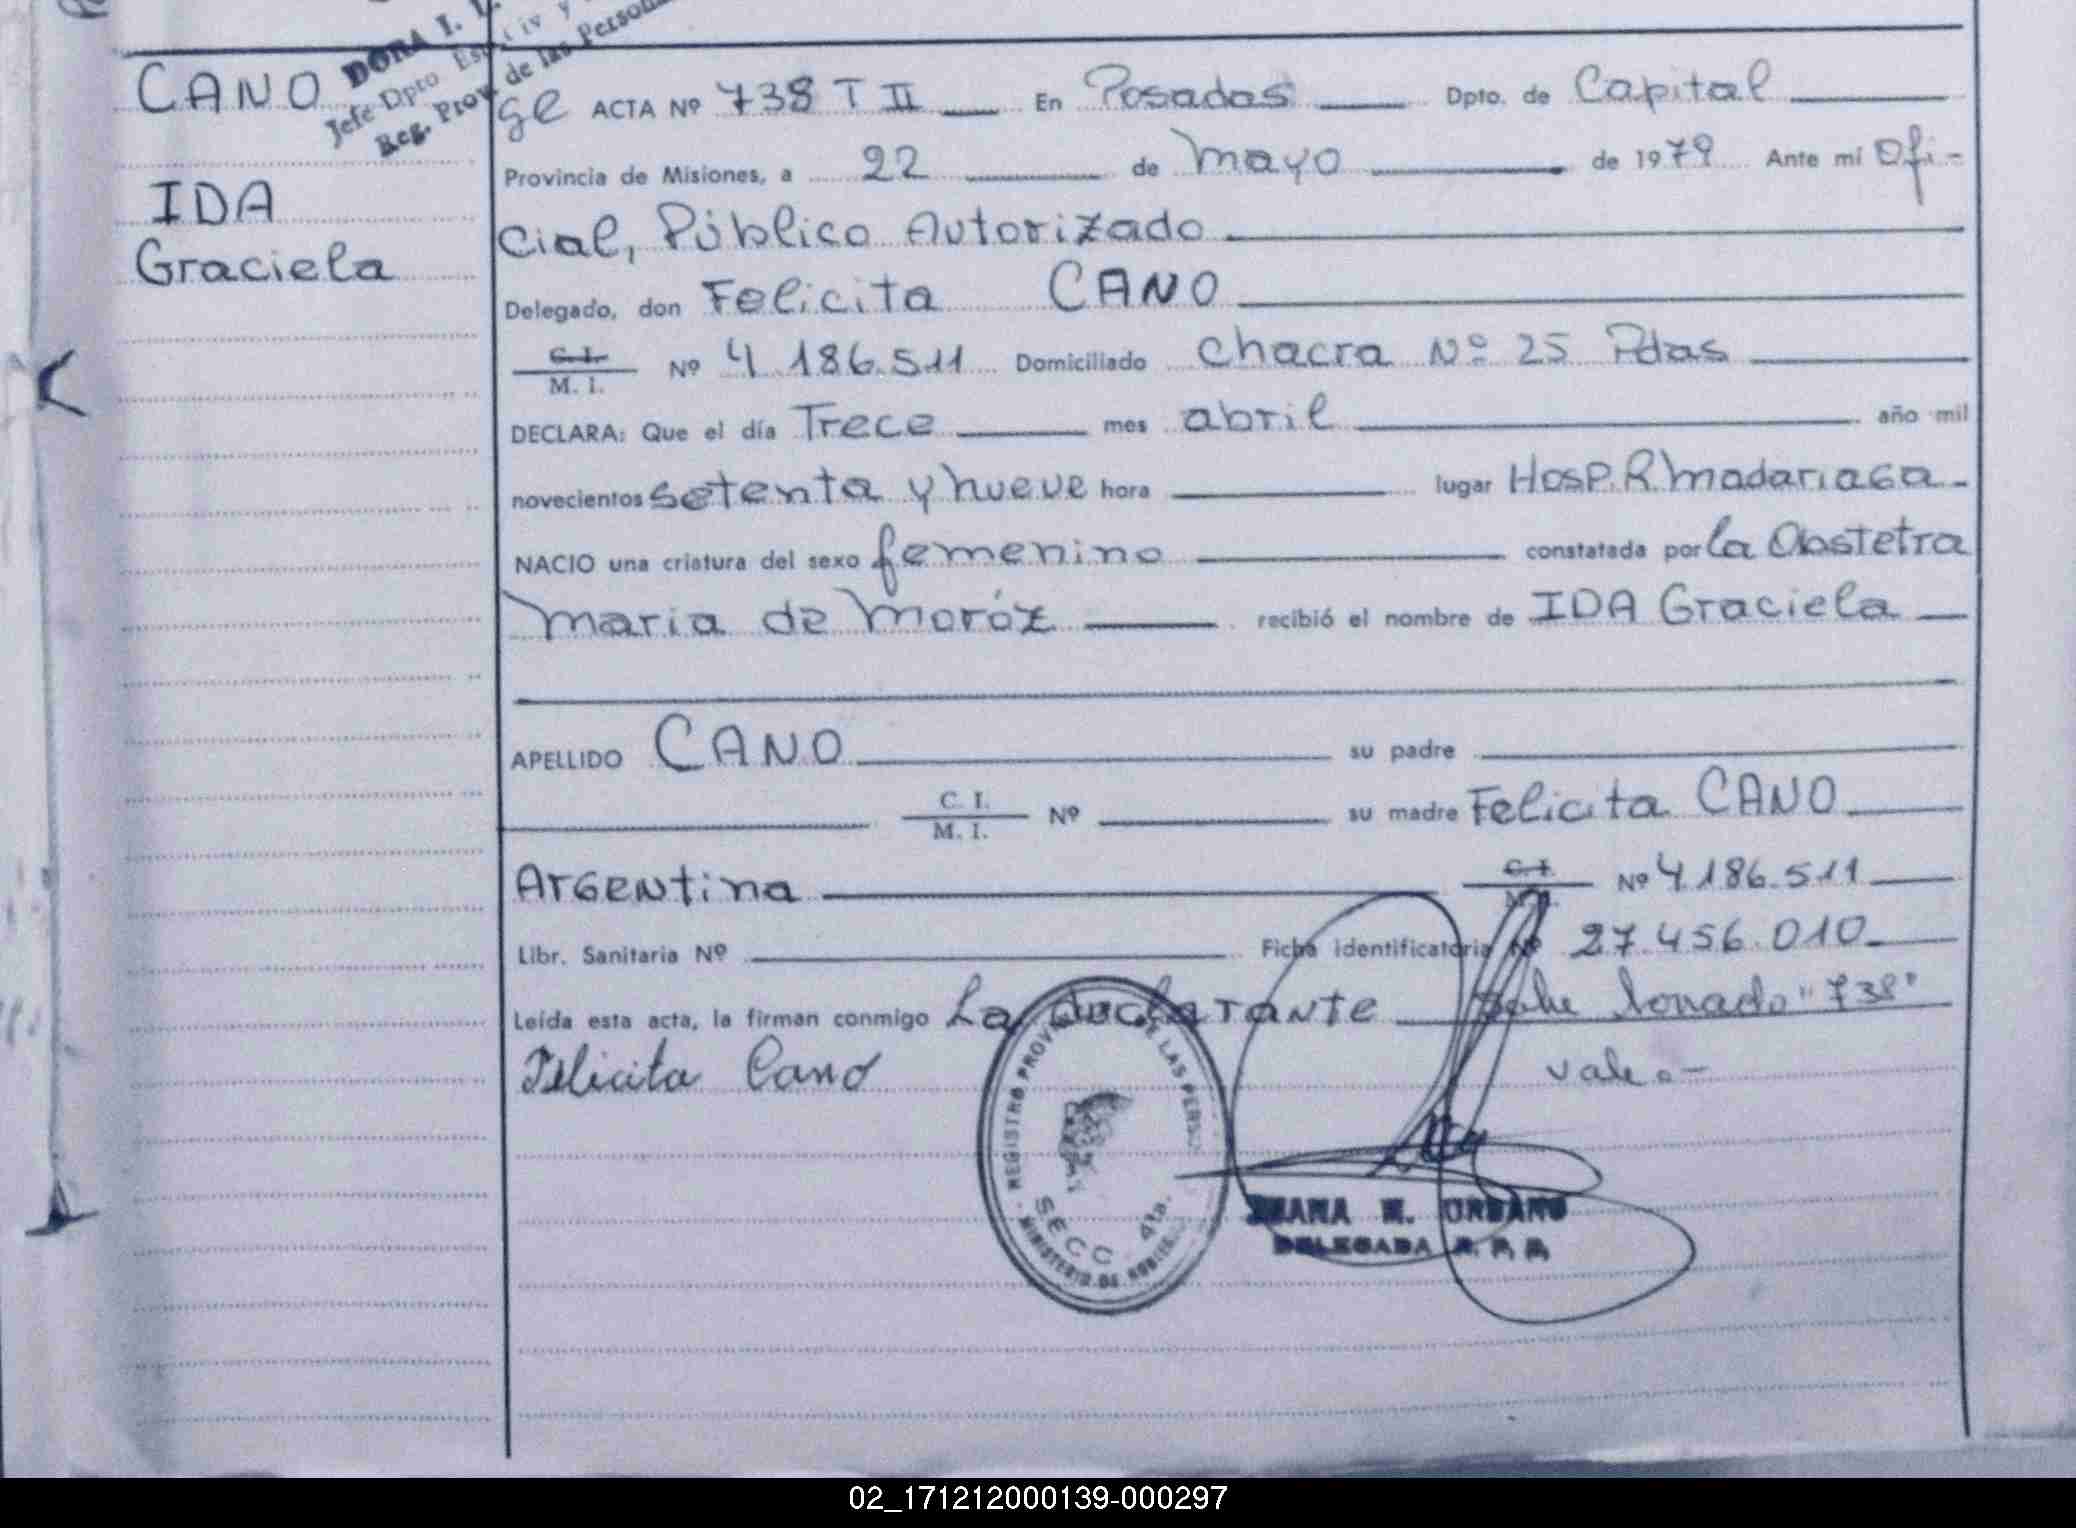 DORA I. L.
Jefe Dpto Es
Reg. Prov. de las Person
CANO
IDA
Graciela
ge ACTA Nº 738 T II En Posadas Dpto. de Capital
Provincia de Misiones, a 22 de Mayo de 1979 Ante mí Ofi-
cial, Público Autorizado
Delegado, don Felicita CANO
C.I.
M. I. Nº 4.186.511 Domiciliado Chacra Nº 25 Pdas
DECLARA: Que el día Trece mes abril año mil
novecientos setenta y nueve hora lugar Hosp. R. Madariaga-
NACIO una criatura del sexo femenino constatada por la Obstetra
Maria de Moróz recibió el nombre de IDA Graciela
APELLIDO CANO su padre
C. I.
M. I. Nº su madre Felicita CANO
Argentina C.I. Nº 4.186.511
Libr. Sanitaria Nº Ficha identificatoria Nº 27.456.010
Leída esta acta, la firman conmigo La declarante "738"
Felicita Cano vale.-
REGISTRO PROV DE LAS PERSO
SECC. 4ta.
MINISTERIO DE
M. URBANO
DELEGADA
02_171212000139-000297